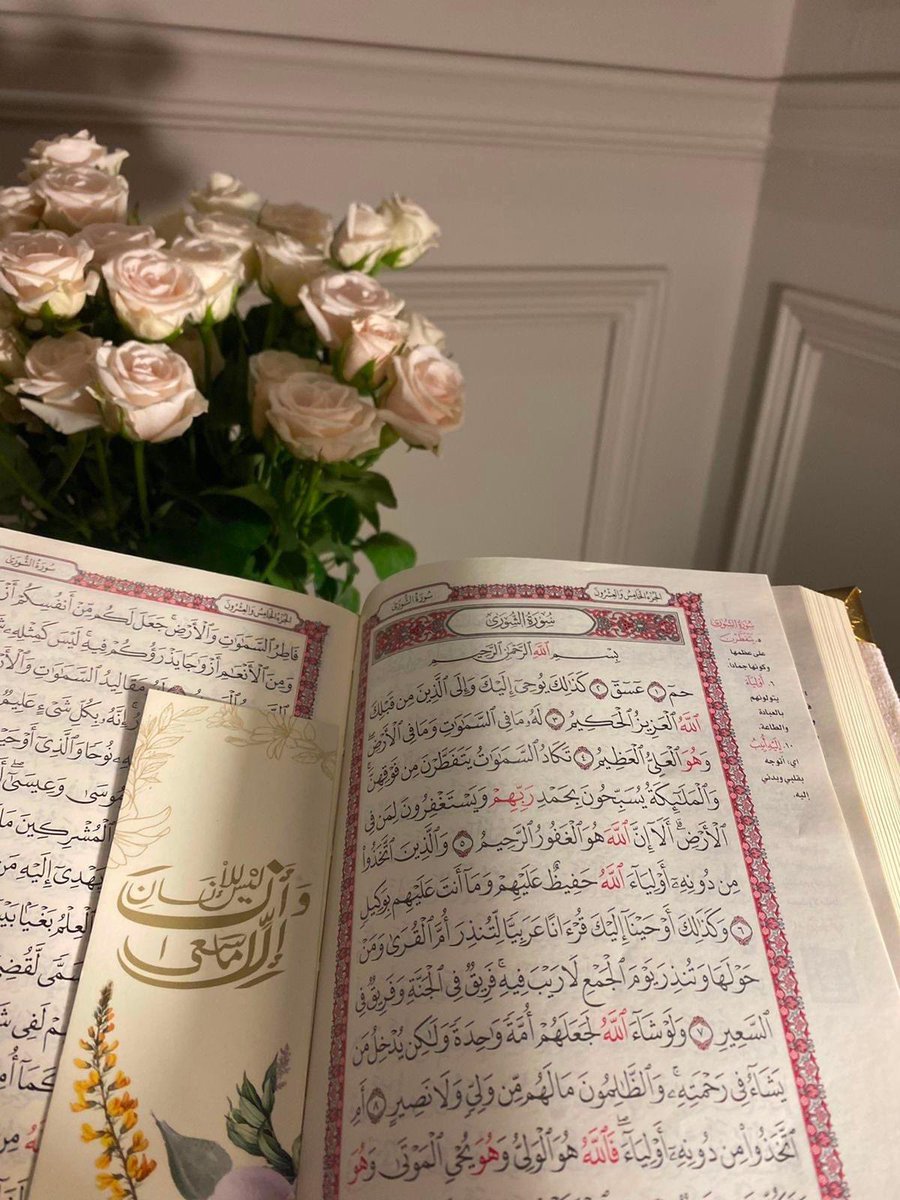 الجُزْءُ الخَامِسُ وَالعِشْرُونَ سُورَةُ الشُّورَىٰ
سُورَةُ الشُّورَىٰ
بِسْمِ اللَّهِ الرَّحْمَٰنِ الرَّحِيمِ
حمٓ ١ عٓسٓقٓ ٢ كَذَٰلِكَ يُوحِىٓ إِلَيْكَ وَإِلَى ٱلَّذِينَ مِن قَبْلِكَ
ٱللَّهُ ٱلْعَزِيزُ ٱلْحَكِيمُ ٣ لَهُۥ مَا فِى ٱلسَّمَٰوَٰتِ وَمَا فِى ٱلْأَرْضِۖ
وَهُوَ ٱلْعَلِىُّ ٱلْعَظِيمُ ٤ تَكَادُ ٱلسَّمَٰوَٰتُ يَتَفَطَّرْنَ مِن فَوْقِهِنَّۚ
وَٱلْمَلَٰٓئِكَةُ يُسَبِّحُونَ بِحَمْدِ رَبِّهِمْ وَيَسْتَغْفِرُونَ لِمَن فِى
ٱلْأَرْضِۗ أَلَآ إِنَّ ٱللَّهَ هُوَ ٱلْغَفُورُ ٱلرَّحِيمُ ٥ وَٱلَّذِينَ ٱتَّخَذُوا۟
مِن دُونِهِۦٓ أَوْلِيَآءَ ٱللَّهُ حَفِيظٌ عَلَيْهِمْ وَمَآ أَنتَ عَلَيْهِم بِوَكِيلٍ
٦ وَكَذَٰلِكَ أَوْحَيْنَآ إِلَيْكَ قُرْءَانًا عَرَبِيًّا لِّتُنذِرَ أُمَّ ٱلْقُرَىٰ وَمَنْ
حَوْلَهَا وَتُنذِرَ يَوْمَ ٱلْجَمْعِ لَا رَيْبَ فِيهِۚ فَرِيقٌ فِى ٱلْجَنَّةِ وَفَرِيقٌ فِى
ٱلسَّعِيرِ ٧ وَلَوْ شَآءَ ٱللَّهُ لَجَعَلَهُمْ أُمَّةً وَٰحِدَةً وَلَٰكِن يُدْخِلُ مَن
يَشَآءُ فِى رَحْمَتِهِۦۚ وَٱلظَّٰلِمُونَ مَا لَهُم مِّن وَلِىٍّ وَلَا نَصِيرٍ ٨ أَمِ
ٱتَّخَذُوا۟ مِن دُونِهِۦٓ أَوْلِيَآءَۖ فَٱللَّهُ هُوَ ٱلْوَلِىُّ وَهُوَ يُحْىِ ٱلْمَوْتَىٰ وَهُوَ
سُورَةُ الشُّورَىٰ
٥. يَتَفَطَّرْنَ
على عظمها
وكونها جماداً.
٦. أَوْلِيَآءَ
يتولونهم
بالعبادة
والطاعة.
١٠. إِلَيْهِ أُنِيبُ
أي: أتوجه
بقلبي وبدني
إليه.
الجُزْءُ الخَامِسُ وَالعِشْرُونَ سُورَةُ الشُّورَىٰ
فَاطِرُ ٱلسَّمَٰوَٰتِ وَٱلْأَرْضِۚ جَعَلَ لَكُم مِّنْ أَنفُسِكُمْ
وَمِنَ ٱلْأَنْعَٰمِ أَزْوَٰجًا يَذْرَؤُكُمْ فِيهِۚ لَيْسَ كَمِثْلِهِۦ
مَقَالِيدُ ٱلسَّمَٰوَٰتِ
إِنَّهُۥ بِكُلِّ شَىْءٍ عَلِيمٌ
بِهِۦ نُوحًا وَٱلَّذِىٓ
مُوسَىٰ وَعِيسَىٰٓ
ٱلْمُشْرِكِينَ مَا
يَهْدِىٓ إِلَيْهِ مَن
ٱلْعِلْمُ بَغْيًۢا
لَّقُضِىَ
لَفِى
كَمَآ
وَأَن لَّيْسَ لِلْإِنسَانِ
إِلَّا مَا سَعَىٰ